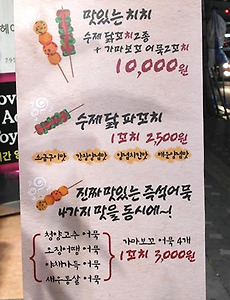 맛있는 치치
수제 닭꼬치2종
+ 가마보꼬 어묵2꼬치
10,000원
수제 닭 파꼬치
1꼬치 2,500원
소금구이맛 간장양념맛 양념치킨맛 매운양념맛
진짜 맛있는 즉석어묵
4가지 맛을 동시에~!
청양고추 어묵
오징어땡 어묵
야채가득 어묵
새우통살 어묵
가마보꼬 어묵 4개
1꼬치 3,000원